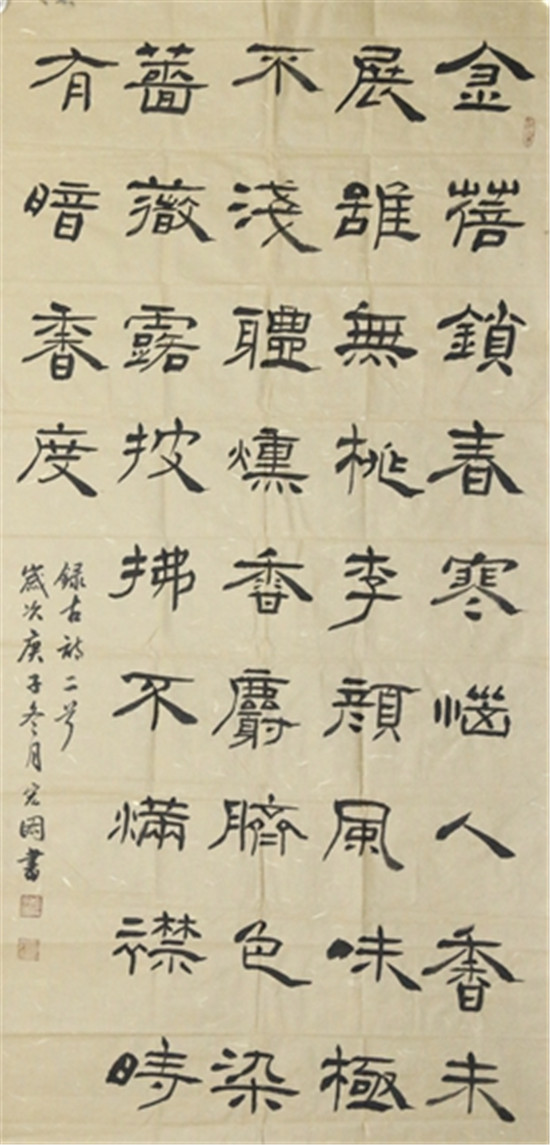 金蓓鎖春寒惱人香未
展雖無桃李顏風味極
不淺體燻香麝臍色染
薔薇露披拂不滿襟時
有暗香度
錄古詩二首
歲次庚子冬月宏書